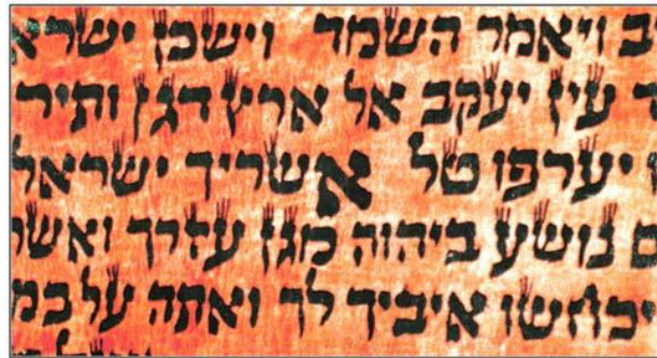 יב ויאמר השמד וישכן ישרא
ד עין יעקב אל ארץ דגן ותיר
ו יערפו טל אשריך ישראל
ם נושע ביהוה מגן עזרך ואשר
יכחשו איביך לך ואתה על במ